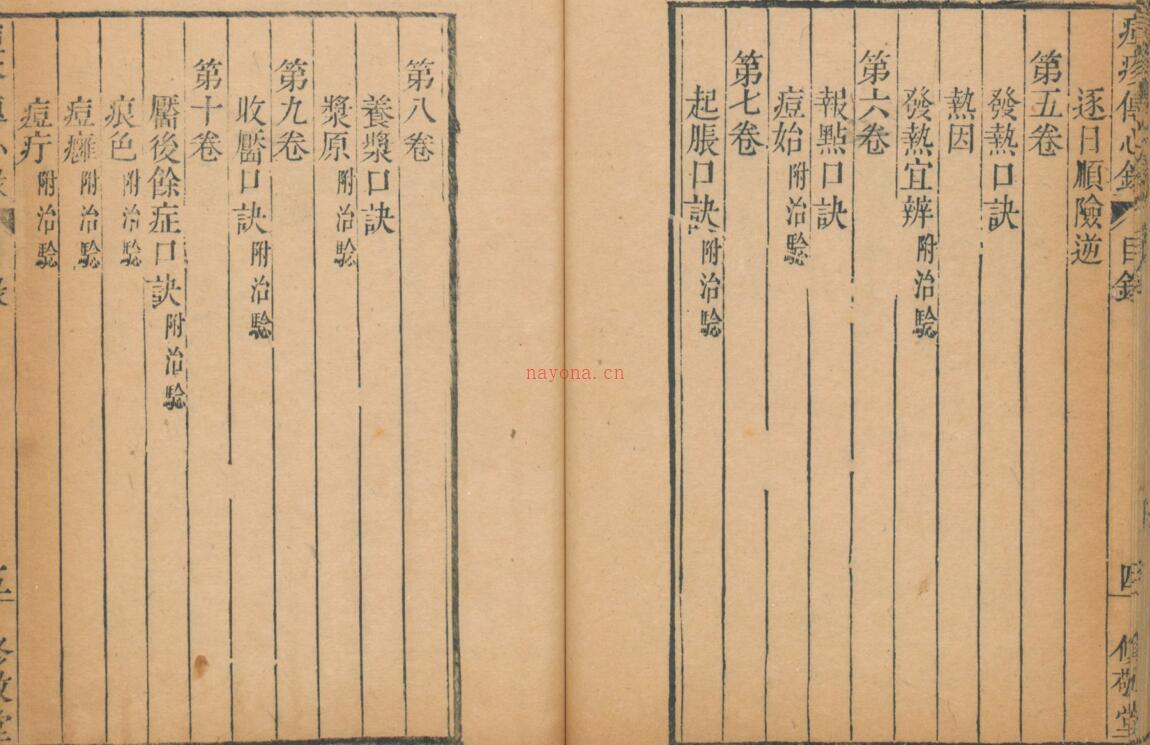 痘疹傳心錄 目錄 四 修敬堂
逐日順險逆
第五卷
發熱口訣
熱因
發熱宜辨 附治驗
第六卷
報點口訣
痘始 附治驗
第七卷
起脹口訣 附治驗
第八卷
養漿口訣
漿原 附治驗
第九卷
收靨口訣 附治驗
第十卷
靨後餘症口訣 附治驗
痕色 附治驗
痘癰 附治驗
痘疔 附治驗
nayona.cn